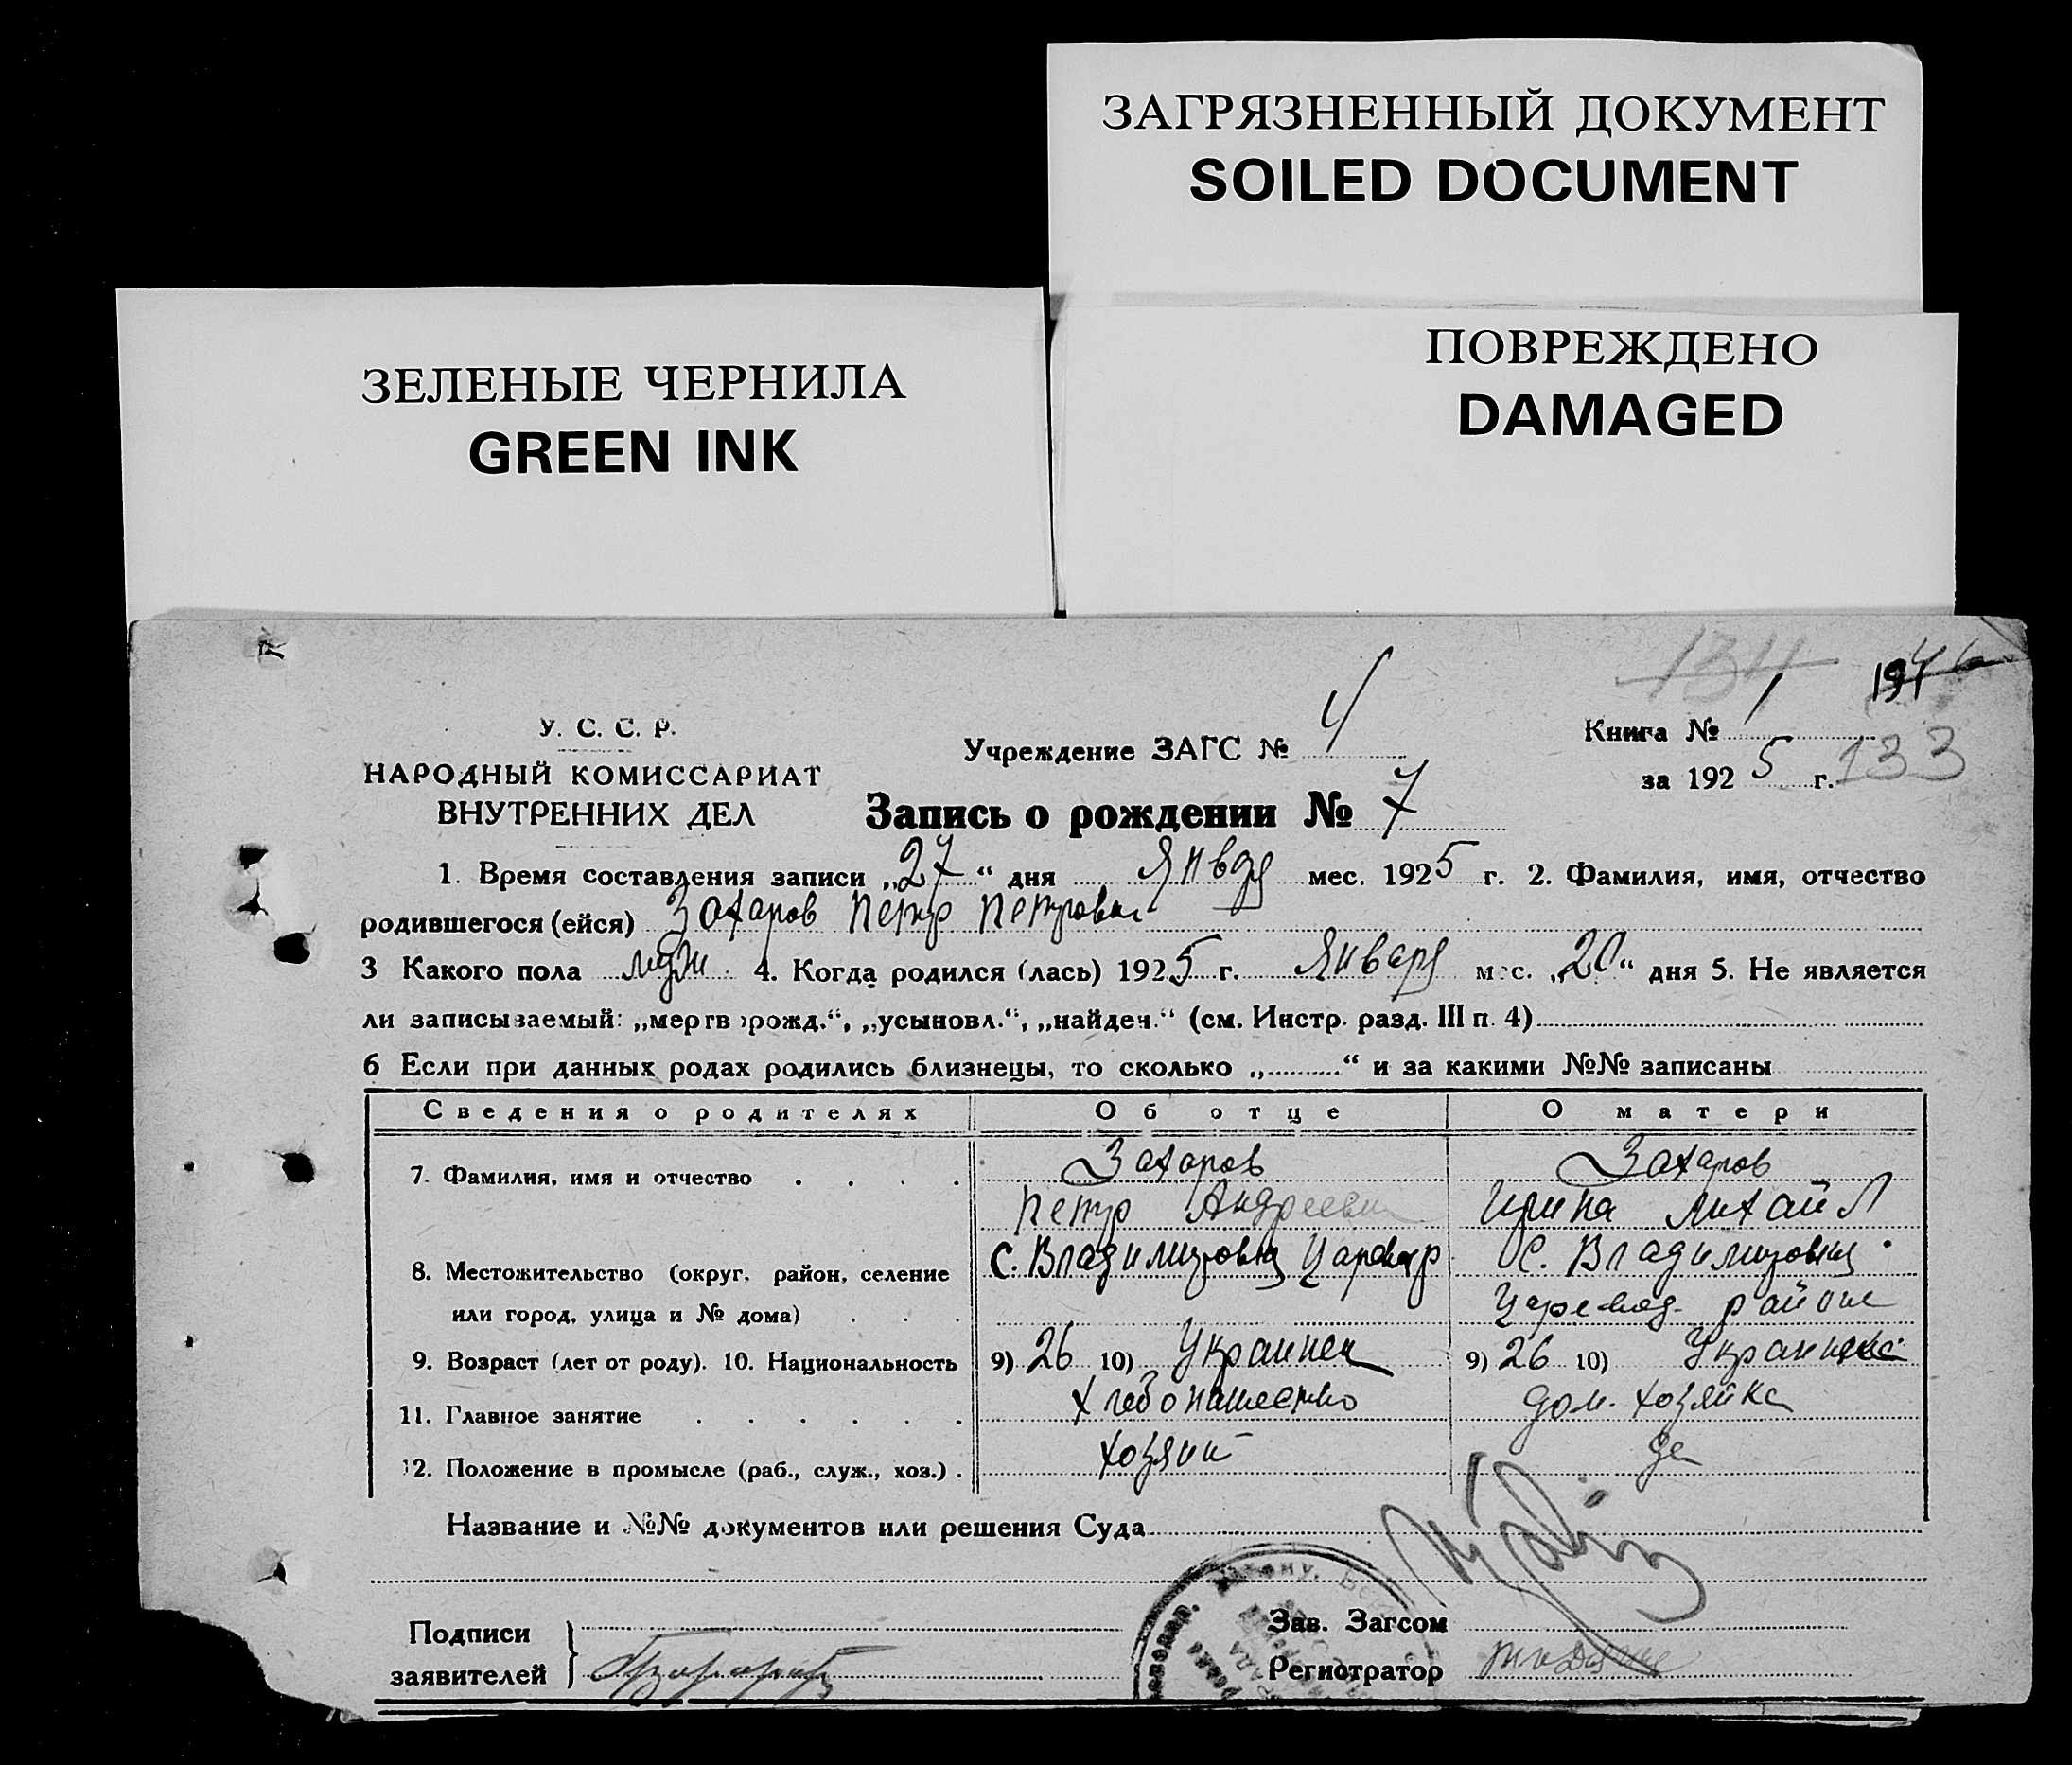 ЗАГРЯЗНЕННЫЙ ДОКУМЕНТ
SOILED DOCUMENT
ЗЕЛЕНЫЕ ЧЕРНИЛА
GREEN INK
ПОВРЕЖДЕНО
DAMAGED
134
У. С. С. Р.
НАРОДНЫЙ КОМИССАРИАТ
ВНУТРЕННИХ ДЕЛ
Учреждение ЗАГС № 4
Запись о рождении № 7
Книга № 1
за 1925 г. 133
1. Время составления записи „27“ дня Январ мес. 1925 г. 2. Фамилия, имя, отчество
родившегося (ейся) Захаров Петр Петрович
3 Какого пола муж. 4. Когда родился (лась) 1925 г. Января мес. „20“ дня 5. Не является
ли записываемый: „мертворожд.“, „усыновл.“, „найден.“ (см. Инстр. разд. III п. 4)
6 Если при данных родах родились близнецы, то сколько „ “ и за какими №№ записаны
Сведения о родителях Об отце О матери
7. Фамилия, имя и отчество Захаров Захаров
Петр Андреевич Ирина Михайл
8. Местожительство (округ, район, селение С. Владимировка С. Владимировка
или город, улица и № дома) района
9. Возраст (лет от роду). 10. Национальность 9) 26 10) Украинец 9) 26 10) Украинка
11. Главное занятие хлебопашество дом. хозяйка
12. Положение в промысле (раб., служ., хоз.) хозяин
Название и №№ документов или решения Суда
Подписи
заявителей
Зав. Загсом
Регистратор